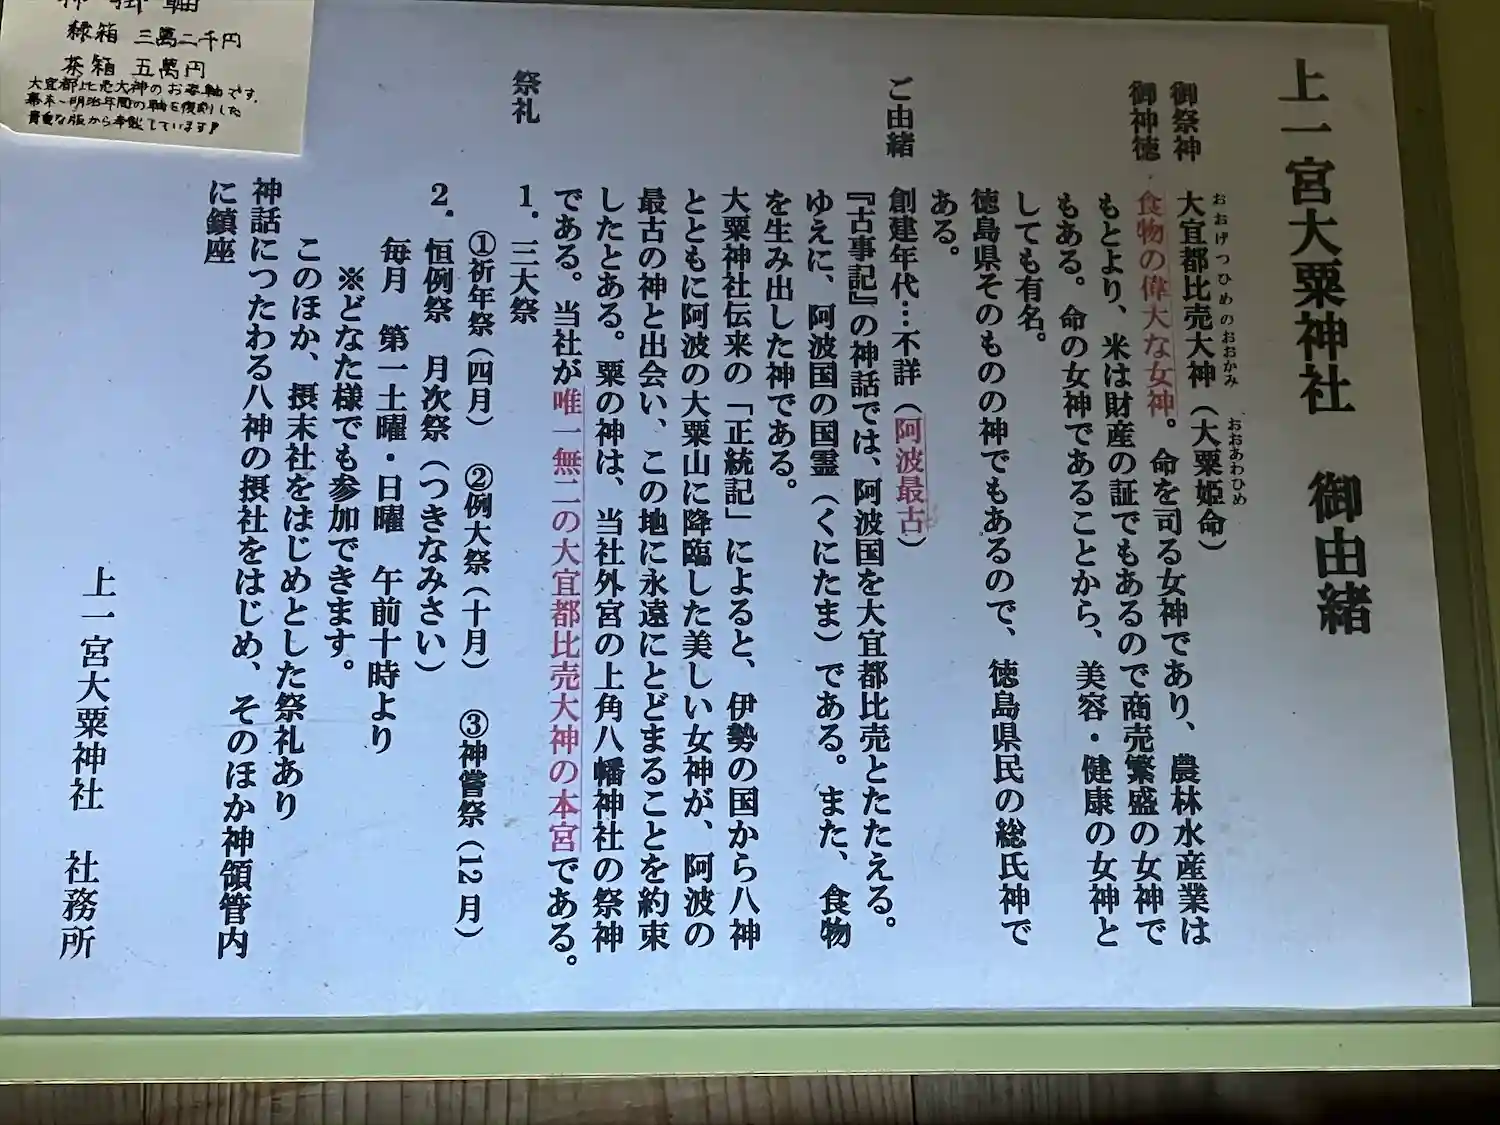 上一宮大粟神社 御由緒
御祭神 大宜都比売大神（大粟姫命）
おおげつひめのおおかみ おおあわひめ
御神徳 食物の偉大な女神。命を司る女神であり、農林水産業は
もとより、米は財産の証でもあるので商売繁盛の女神で
もある。命の女神であることから、美容・健康の女神と
しても有名。
徳島県そのものの神でもあるので、徳島県民の総氏神で
ある。
ご由緒 創建年代…不詳（阿波最古）
『古事記』の神話では、阿波国を大宜都比売とたたえる。
ゆえに、阿波国の国霊（くにたま）である。また、食物
を生み出した神である。
大粟神社伝来の「正統記」によると、伊勢の国から八神
とともに阿波の大粟山に降臨した美しい女神が、阿波の
最古の神と出会い、この地に永遠にとどまることを約束
したとある。粟の神は、当社外宮の上角八幡神社の祭神
である。当社が唯一無二の大宜都比売大神の本宮である。
祭礼 1．三大祭
①祈年祭（四月） ②例大祭（十月） ③神嘗祭（12月）
2．恒例祭 月次祭（つきなみさい）
毎月 第一土曜・日曜 午前十時より
※どなた様でも参加できます。
このほか、摂末社をはじめとした祭礼あり
神話につたわる八神の摂社をはじめ、そのほか神領管内
に鎮座
上一宮大粟神社 社務所
掛軸
緑箱 三萬二千円
茶箱 五萬円
大宜都比売大神のお姿軸です。
幕末～明治年間の軸を復刻した
貴重な版から奉製しています！